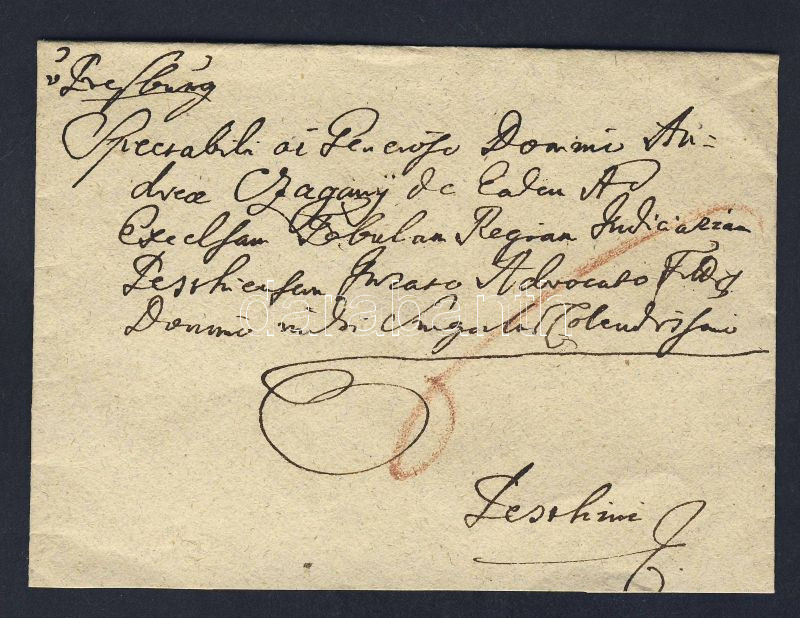 v Presburg
Spectabili ac Generoso Domino An=
dreæ Czagány de Eadem Ad
Excelsam Tabulam Regiam Judiciariam
Pesthiensem Jurato Advocato
Domino mihi Singulari Colendissimo
Pesthini
darabanth